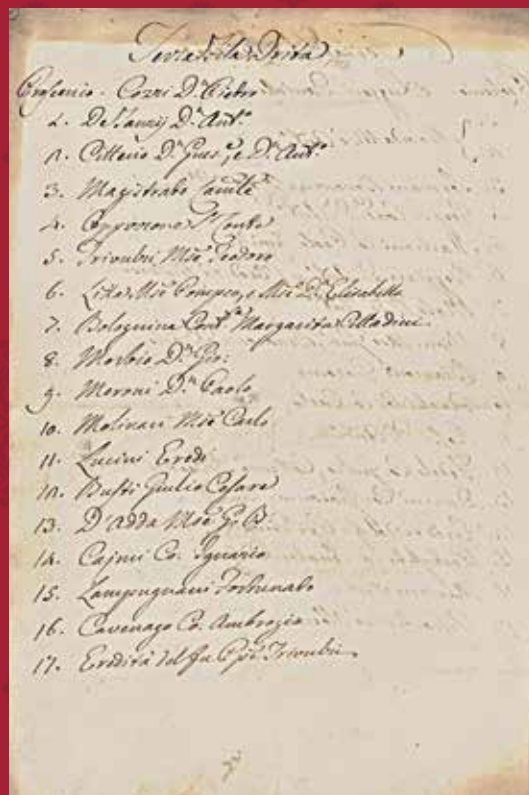 Terza fila Drita
Proscenio - Cozzi D.n Pietro
D.n Ant.o
2. Citterio D.n Gius.e, e D.n Ant.o
3. Magistrato Camle
4. Conte
5. Trivulzi Mse Teodoro
6. Litta Mse Pompeo, e Msa D.a Elisabetta
7. Bolognina Cont.a Margarita
8. Morbio D.n Gio:
9. Moroni D.n Paolo
10. Molinari Mse Carlo
11. Lucini Eredi
12. Busti Giulio Cesare
13. D'adda Mse G. B.
14. Cajmi Co. Ignazio
15. Lampugnani Fortunato
16. Cavenago Co. Ambrogio
17. Eredità del fu Trivulzi